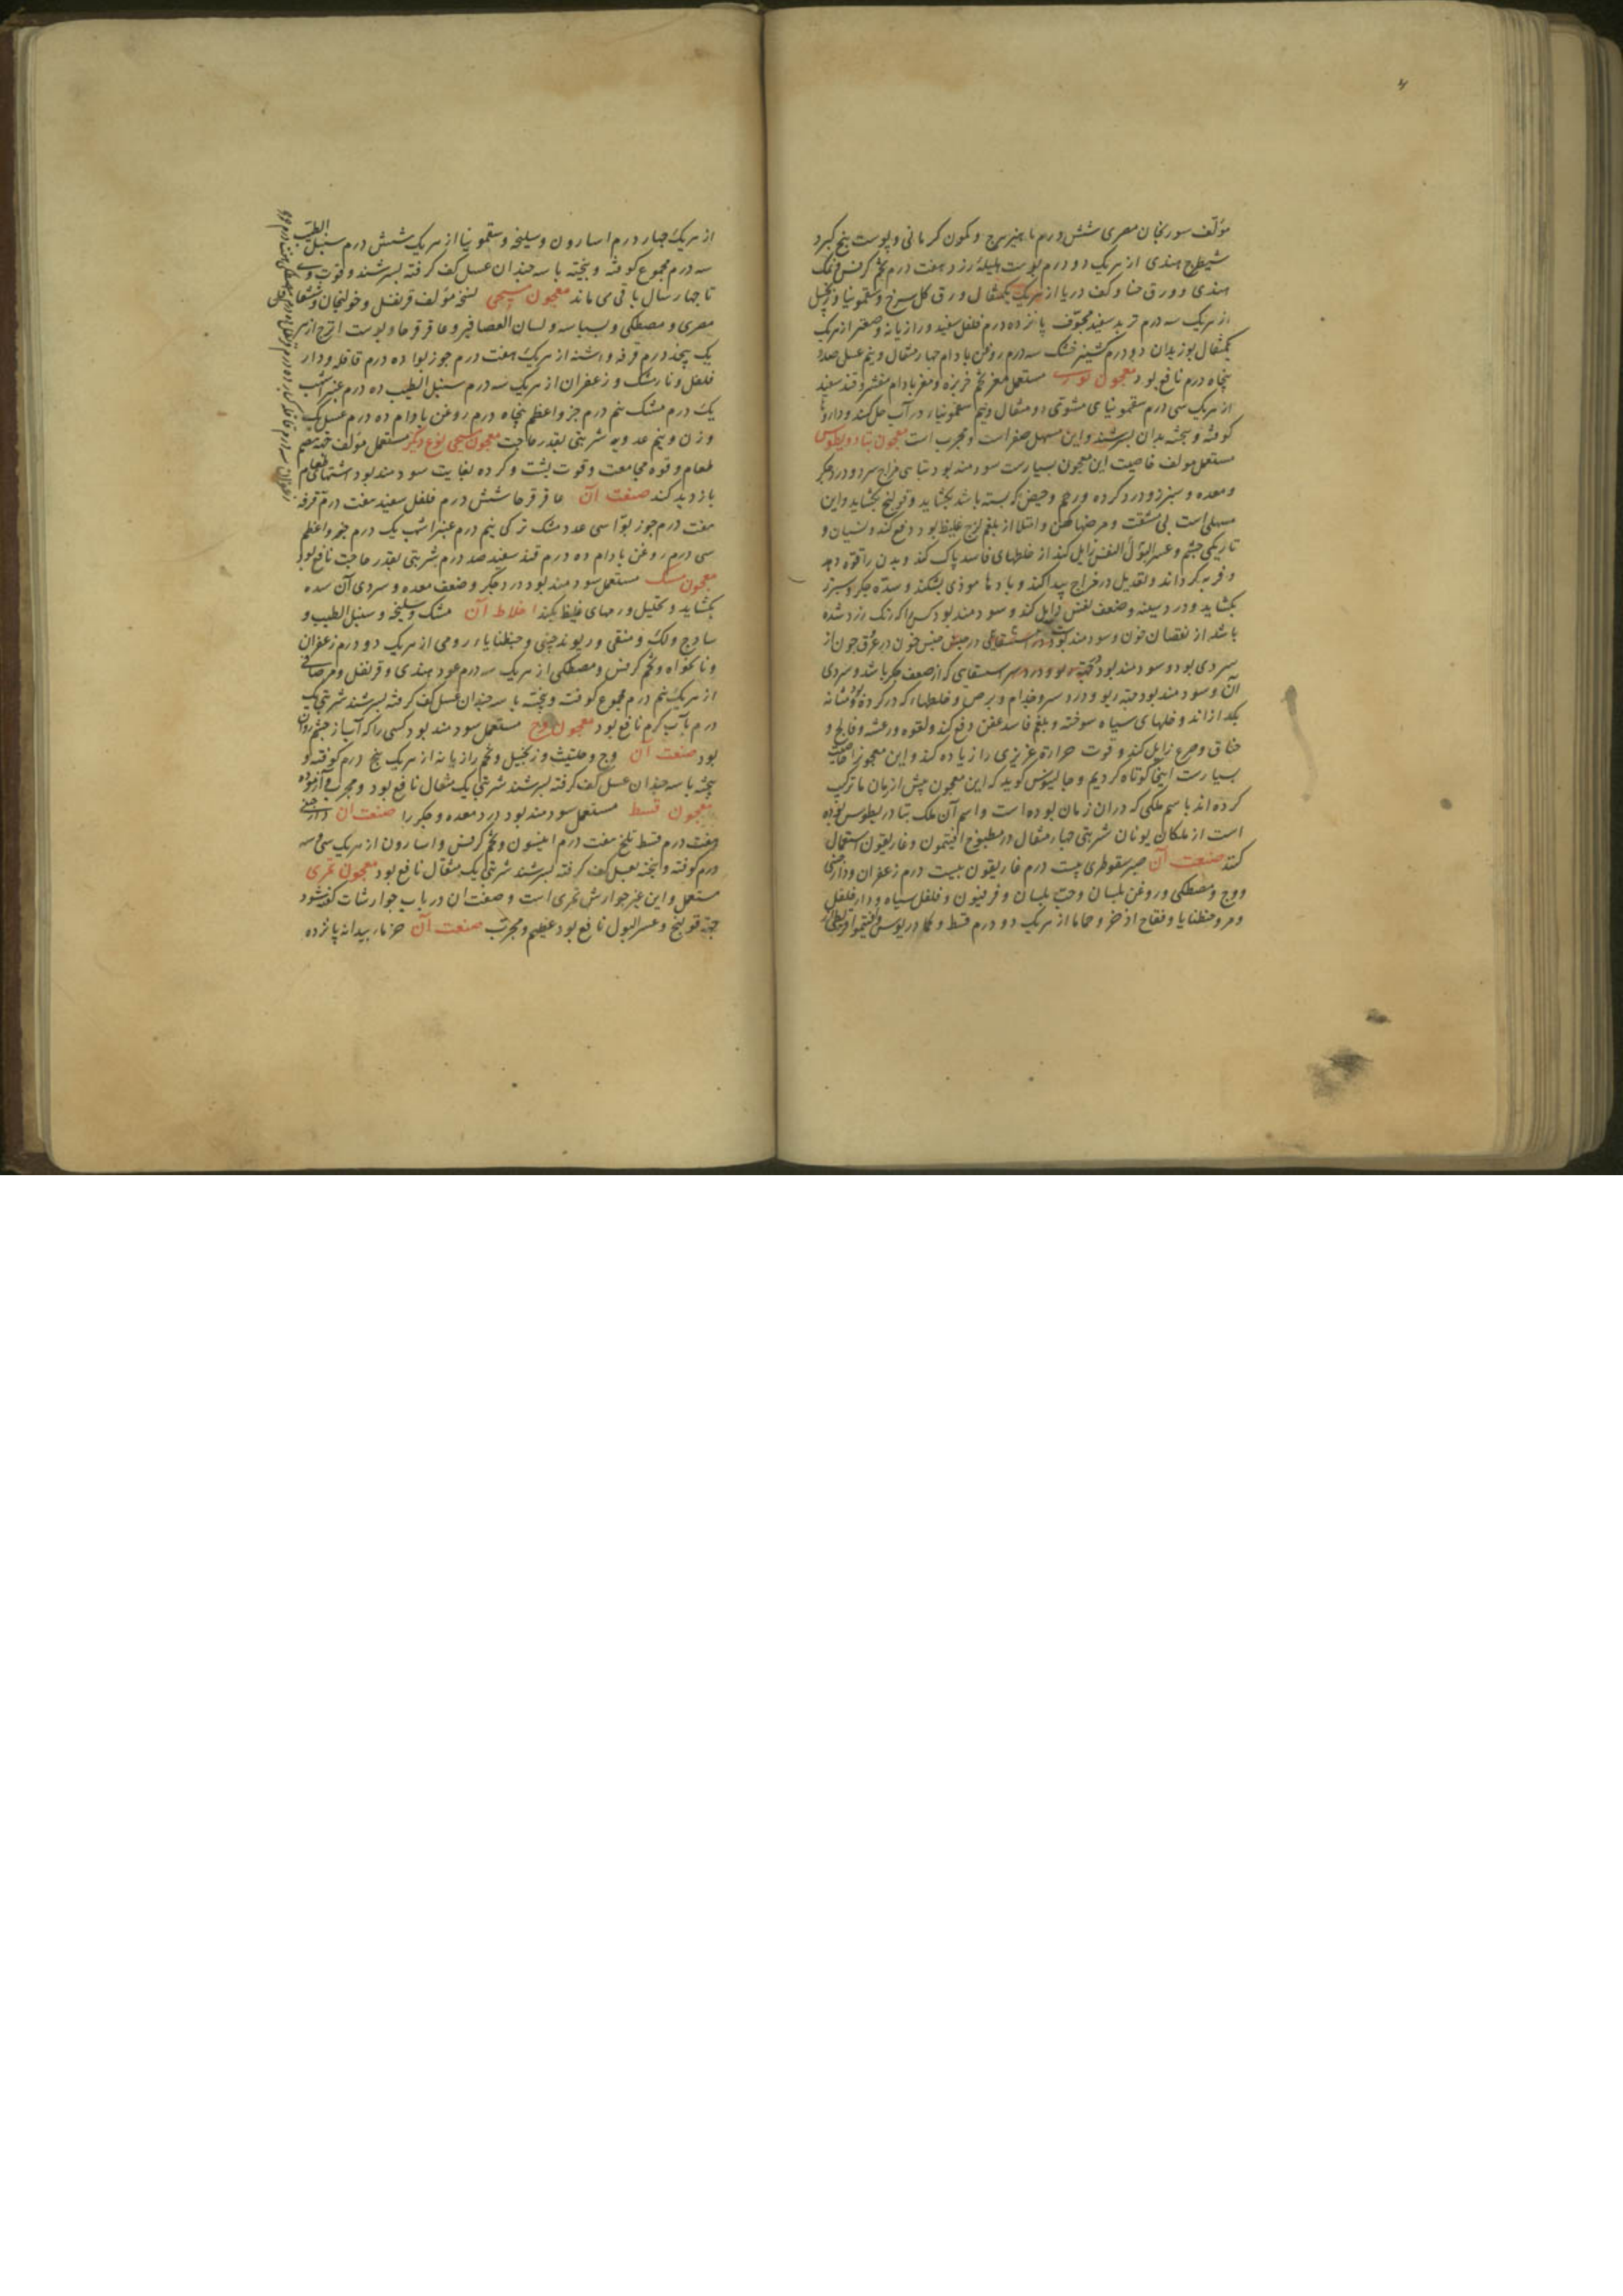 مؤلف سورنجان مصری شش درم ماهیزهرج و کمون کرمانی و پوست بیخ کبر و
شیطرج هندی از هر یک دو درم پوست هلیلهٔ زرد هفت درم تخم کرفس و نمک
هندی و ورق حنا و کف دریا از هر یک یکمثقال ورق کل سرخ و سقمونیا و زنجبیل
از هر یک سه درم تربد سفید مجوّف پانزده درم فلفل سفید و رازیانه و صعتر از هر یک
یکمثقال بوزیدان دو درم کشنیز خشک سه درم روغن بادام چهار مثقال و نیم عسل صد و
پنجاه درم نافع بود معجون مستعمل مغز تخم خربزه و مغز بادام مقشر و قند سفید
از هر یک سی درم سقمونیای مشوی دو مثقال و نیم سقمونیا در آب حل کند و داروها
کوفته و بیخته بدان بسرشند و این مسهل صفراست و مجرب است معجون تیادریطوس
مستعمل مولف خاصیت این معجون بسیارست سودمند بود تباهی مزاج سرد و درد جکر
و معده و سپرز و درد کرده و رحم و حیض که بسته باشد بکشاید و قولنج بکشاید و این
مسهلی است بی مشقت و مرضهاء کهن و امتلا از بلغم لزج غلیظ بود دفع کند و نسیان و
تاریکی چشم و عسر البول النفس زایل کند از خلطهای فاسد پاک کند و بدن را قوّه دهد
و فربه کرداند و تعدیل در مزاج پیدا کند و بادها موذی بشکند و سدّه جکر و سپرز
بکشاید و درد سینه و ضعف نفس زایل کند و سودمند بود کسی را که رنک زرد شده
باشد از نقصان خون و سودمند بود حبس خون در عرق چون از
سردی بود و سودمند بود استسقای که از ضعف جکر باشد و سردی
آن و سودمند بود جهت ربو و درد سر و جذام و برص و خلطها که در کرده و مثانه
بکدازاند و خلطهای سیاه سوخته و بلغم فاسد عفن دفع کند و لقوه و رعشه و فالج و
خناق و صرع زایل کند و قوت حرارة غریزی را زیاده کند و این معجون را خاصیت
بسیارست اینجا کوتاه کردیم و جالینوس کوید که این معجون پیش از زمان ما ترکیب
کرده اند باسم ملکی که در آن زمان بوده است و اسم آن ملک تیادریطوس بوده
است از ملکان یونان شربتی چهار مثقال در مطبوخ افتیمون و غاریقون استعمال
کنند صنعت آن صبر سقوطری بیست درم غاریقون بیست درم زعفران و دارچینی
و وج و مصطکی و روغن بلسان و حبّ بلسان و فرفیون و فلفل سیاه و دار فلفل
و مر و جنطیانا و فقاح اذخر و حماما از هر یک دو درم قسط و کمادریوس و افتیمون
از هر یک چهار درم اسارون و سلیخه و سقمونیا از هر یک شش درم سنبل الطیب
سه درم مجموع کوفته و بیخته با سه چندان عسل کف کرفته بسرشند و قوت وی
تا چهار سال باقی می ماند معجون مسیحی نسخه مؤلف قرنفل و خولنجان و شقاقل
مصری و مصطکی و بسباسه و لسان العصافیر و عاقرقرحا و پوست اترج از هر
یک پنجدرم قرفه و اشنه از هر یک هفت درم جوز بوا ده درم قاقله و دار
فلفل و نارمشک و زعفران از هر یک سه درم سنبل الطیب ده درم عنبر اشهب
یک درم مشک نیم درم جزو اعظم پنجاه درم روغن بادام ده درم عسل یک
وزن و نیم عدویه شربتی بقدر حاجت معجون مسیحی نوع دیکر مستعمل مولف جهه هضم
طعام و قوه مجامعت و قوت پشت و کرده بغایت سودمند بود اشتهای طعام
بازدید کند صنعت آن عاقرقرحا شش درم فلفل سفید هفت درم قرفه
هفت درم جوز بوّا سی عدد مشک ترکی نیم درم عنبر اشهب یک درم جزو اعظم
سی درم روغن بادام ده درم قند سفید صد درم شربتی بقدر حاجت نافع بود
معجون مسک مستعمل سودمند بود درد جکر و ضعف معده و سردی آن سده
بکشاید و تحلیل ورمهای غلیظ بکند اخلاط آن مشک و سلیخه و سنبل الطیب و
سادج و لک و منقی و ریوند چینی و جنطیانا رومی از هر یک دو درم زعفران
و نانخواه و تخم کرفس و مصطکی از هر یک سه درم عود هندی و قرنفل و مر صافی
از هر یک نیم درم مجموع کوفته و بیخته با سه چندان عسل کف کرفته بسرشند شربتی یک
درم بآب کرم نافع بود معجون وج مستعمل سودمند بود کسی را که آب از چشم روان
بود صنعت آن وج و حلتیث و زنجبیل و تخم رازیانه از هر یک پنج درم کوفته و
بیخته با سه چندان عسل کف کرفته بسرشند شربتی یک مثقال نافع بود و مجرب و آزموده
معجون قسط مستعمل سودمند بود درد معده و جکر را صنعت آن دارچینی
هفت درم قسط تلخ هفت درم انیسون و تخم کرفس و اسارون از هر یک سی و سه
درم کوفته و بیخته بعسل کف کرفته بسرشند شربتی یک مثقال نافع بود معجون تمری
مستعمل و این غیر جوارش تمری است و صفت آن در باب جوارشات کفته شود
جهة قولنج و عسر البول نافع بود عظیم و مجرّب صنعت آن خرما بیدانه پانزده